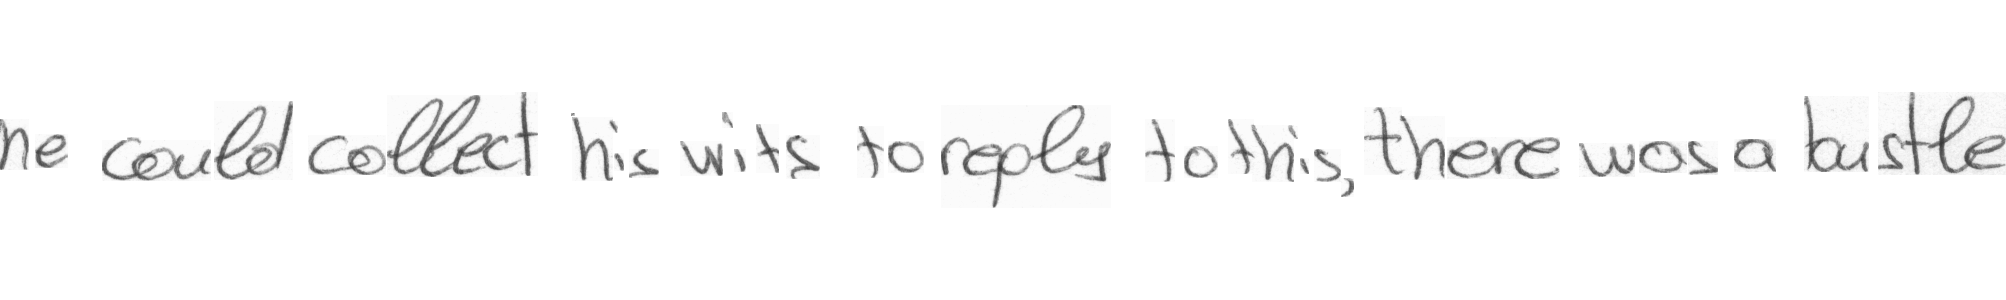 he could collect his wits to reply to this, there was a bustle